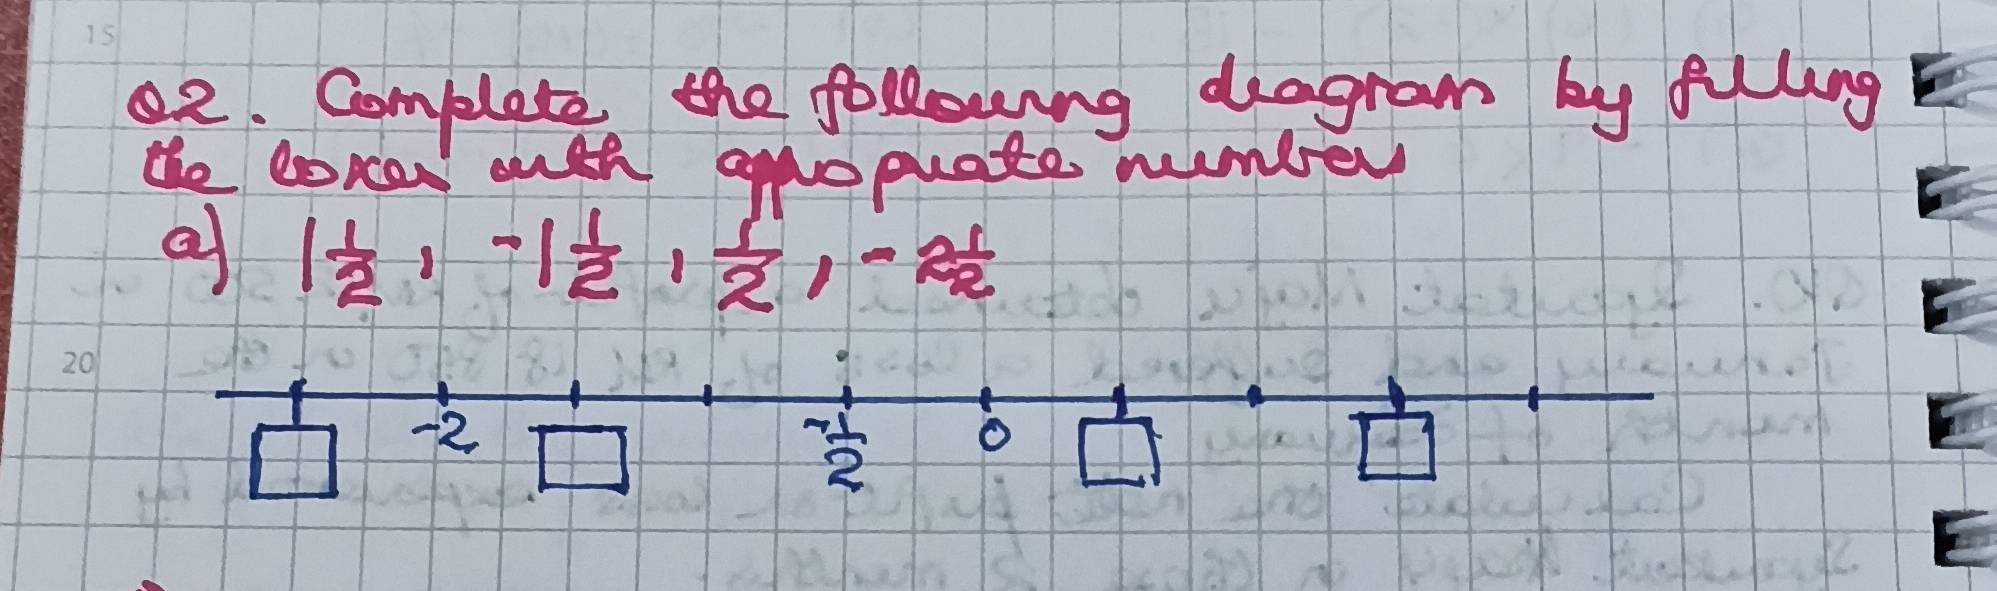 15
Q2. Complete the following diagram by filling
the boxes with appropriate numbers
a) 1 1/2, -1 1/2, 1/2, -2 1/2
20
-2 -1/2 0